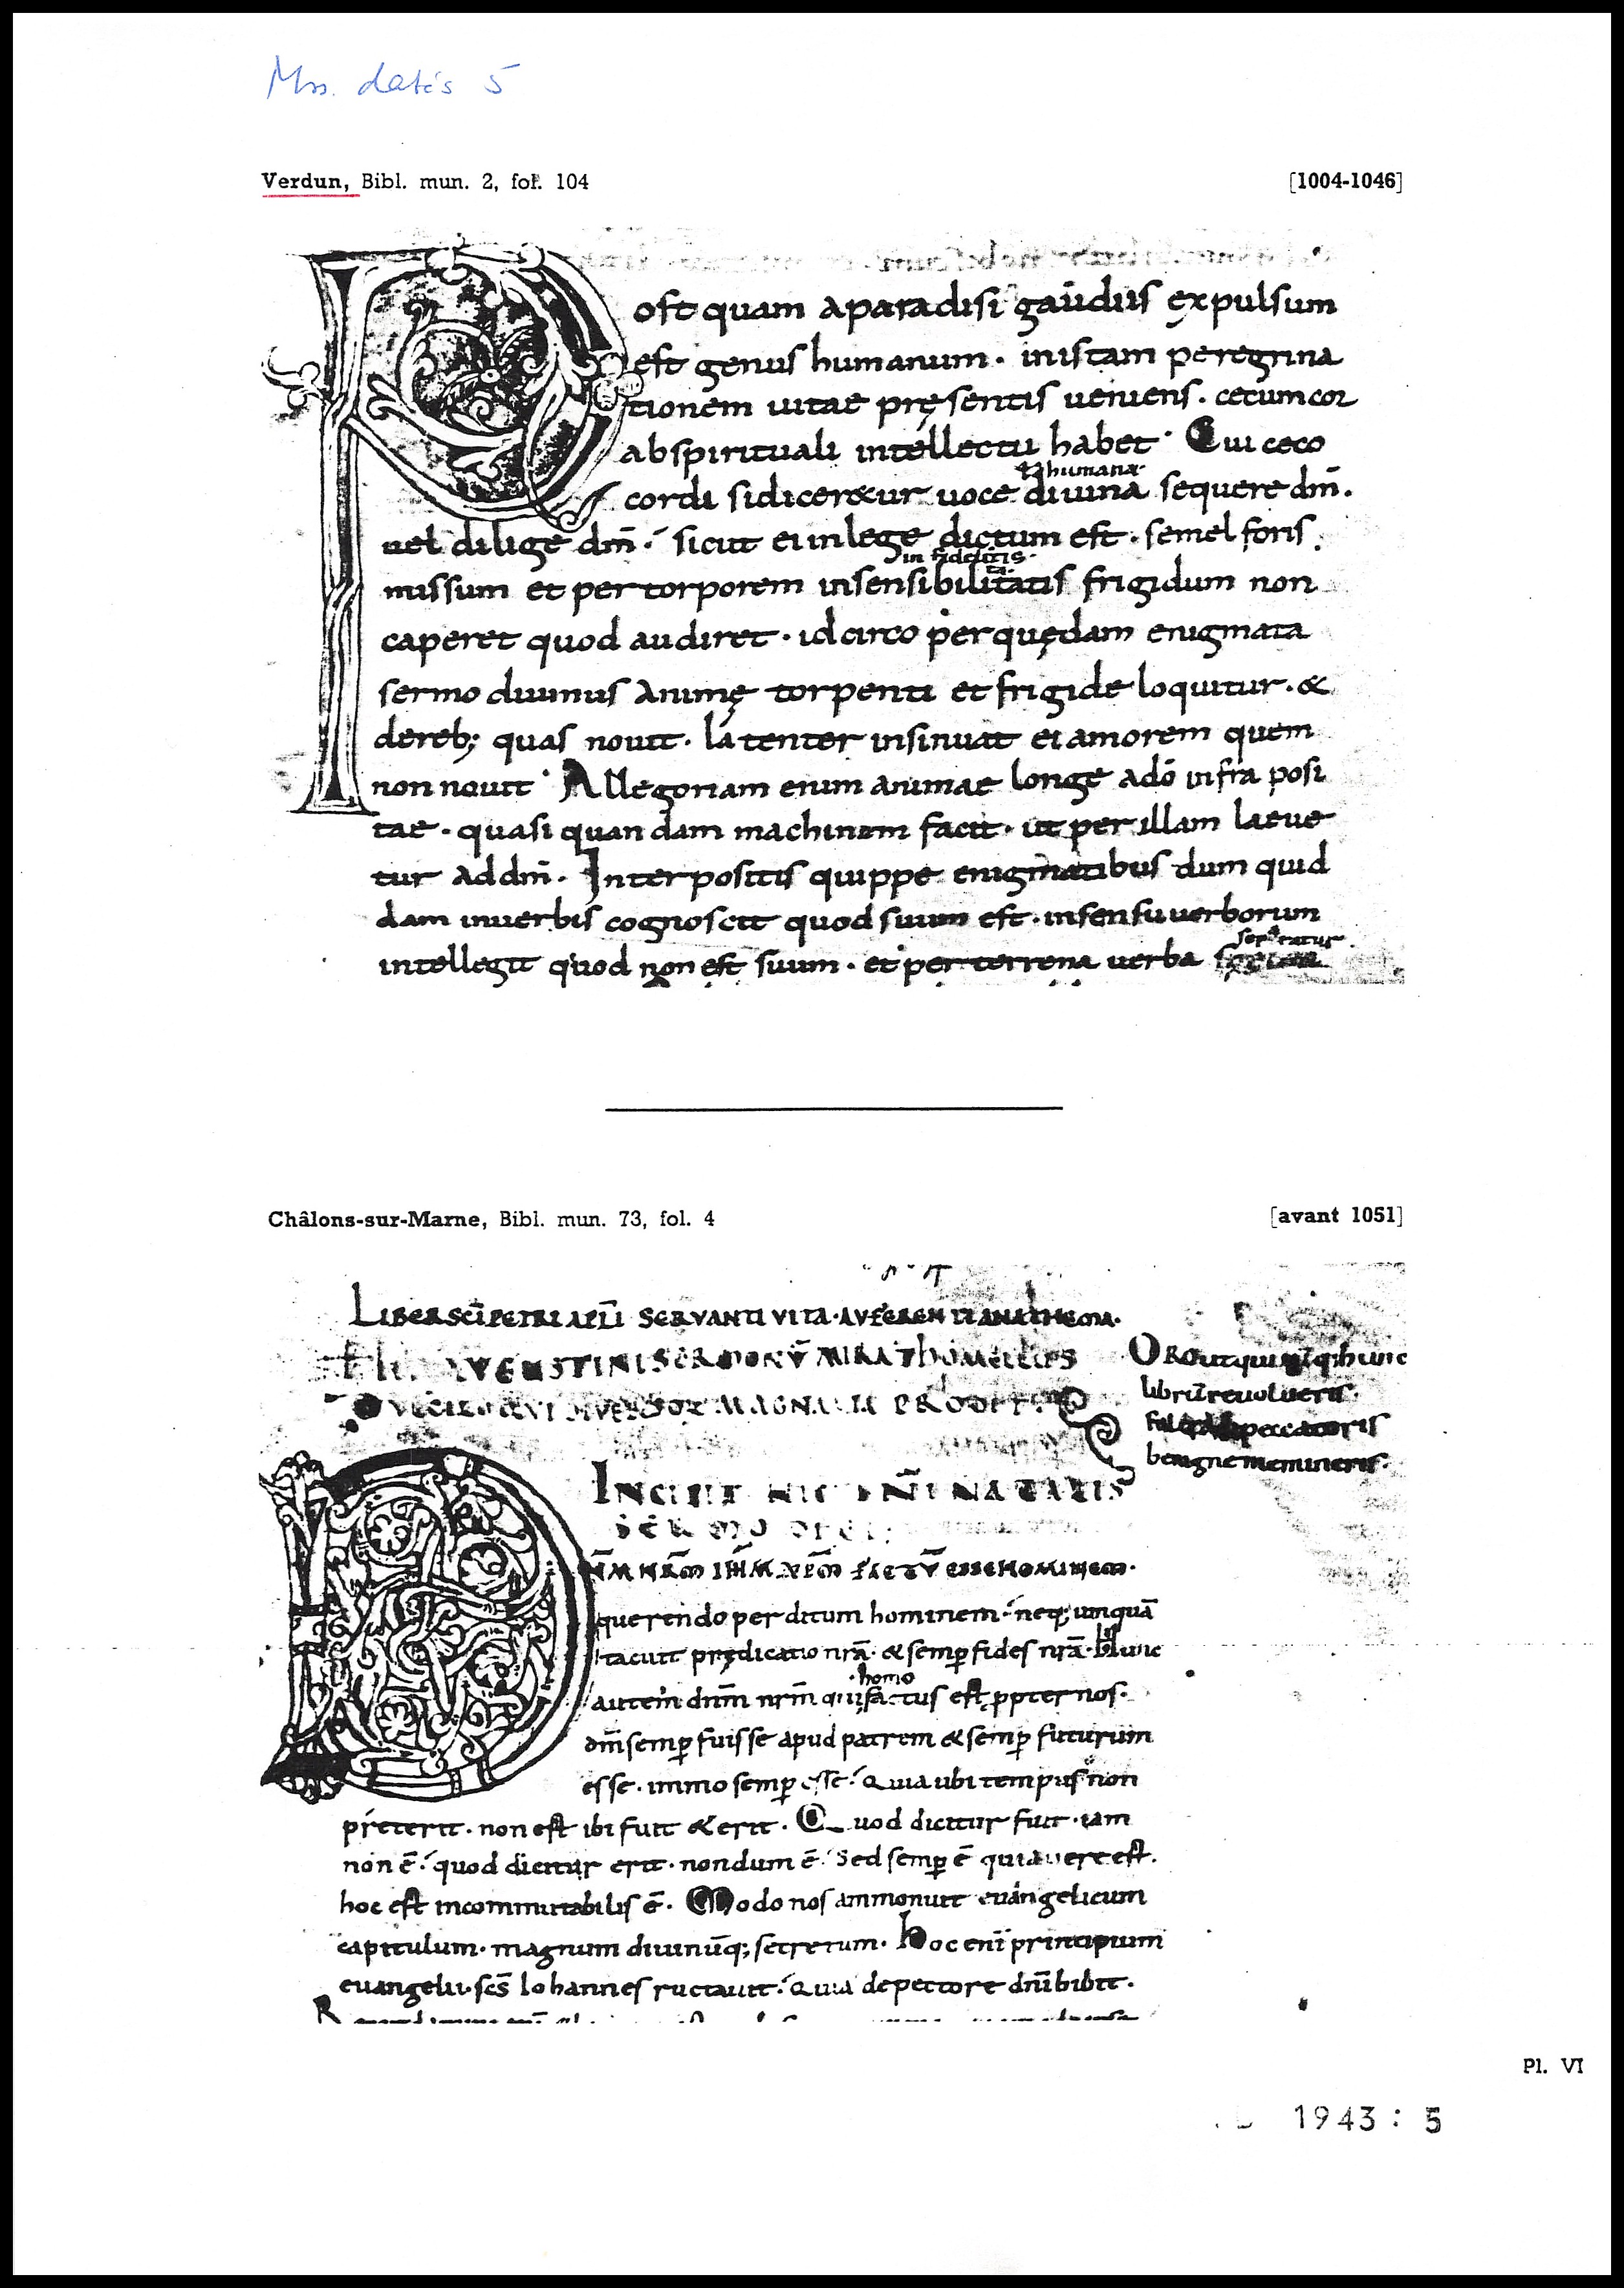 Mss. datés 5
Verdun, Bibl. mun. 2, fol. 104
[1004-1046]
ost quam a paradisi gaudiis expulsum
est genus humanum · in istam peregrina
tionem uitae pręsentis ueniens · cecum cor
ab spirituali intellectu habet · Cui ceco
humana
cordi si diceretur uoce diuina sequere dm̄ ·
uel dilige dm̄ · sicut ei in lege dictum est · semel foris
in fidelitatis
missum et per torporem insensibilitatis frigidum non
caperet quod audiret · id circo per quędam enigmata
sermo diuinus animę torpenti et frigide loquitur · &
de reb; quas nouit · latenter insinuat ei amorem quem
non nouit · Allegoriam enim animae longe a dō infra posi
tae · quasi quandam machinam facit · ut per illam leue
tur ad dm̄ · Interpositis quippe enigmatibus dum quid
dam in uerbis cognoscit quod suum est · in sensu uerborum
separatur
intellegit quod non est suum · et per terrena uerba
Châlons-sur-Marne, Bibl. mun. 73, fol. 4
[avant 1051]
LIBER SCI PETRI APLI SERVANTI VITA · AVFERENTI ANATHEMA ·
AVGVSTINI SERMONV̄ MIRA
MAGNALIA PRODIT
ORO ut qui hunc
librū reuolueris ·
peccatoris
benigne memineris ·
INCIPIT DN̄I NATALIS
SERMO
N̄M NR̄M IHM XPM FACTV̄ ESSE HOMINEM ·
querendo perditum hominem · neq; umquā
tacuit prędicatio nrā · & semp fides nrā · hunc
homo
autem dnm̄ nrm̄ qui factus est ppter nos ·
dm̄ semp fuisse apud patrem & semp futurum
esse · immo semp esse · Quia ubi tempus non
preterit · non est ibi fuit & erit · Quod dicitur fuit · iam
non ē · quod dicitur erit · nondum ē · Sed semp ē quia uere est ·
hoc est incommutabilis ē · Modo nos ammonuit euangelicum
capitulum · magnum diuinūq; secretum · Hoc enī principium
euangelii · scs̄ Iohannes ructauit · Quia de pectore dnī bibit ·
Pl. VI
1943 : 5